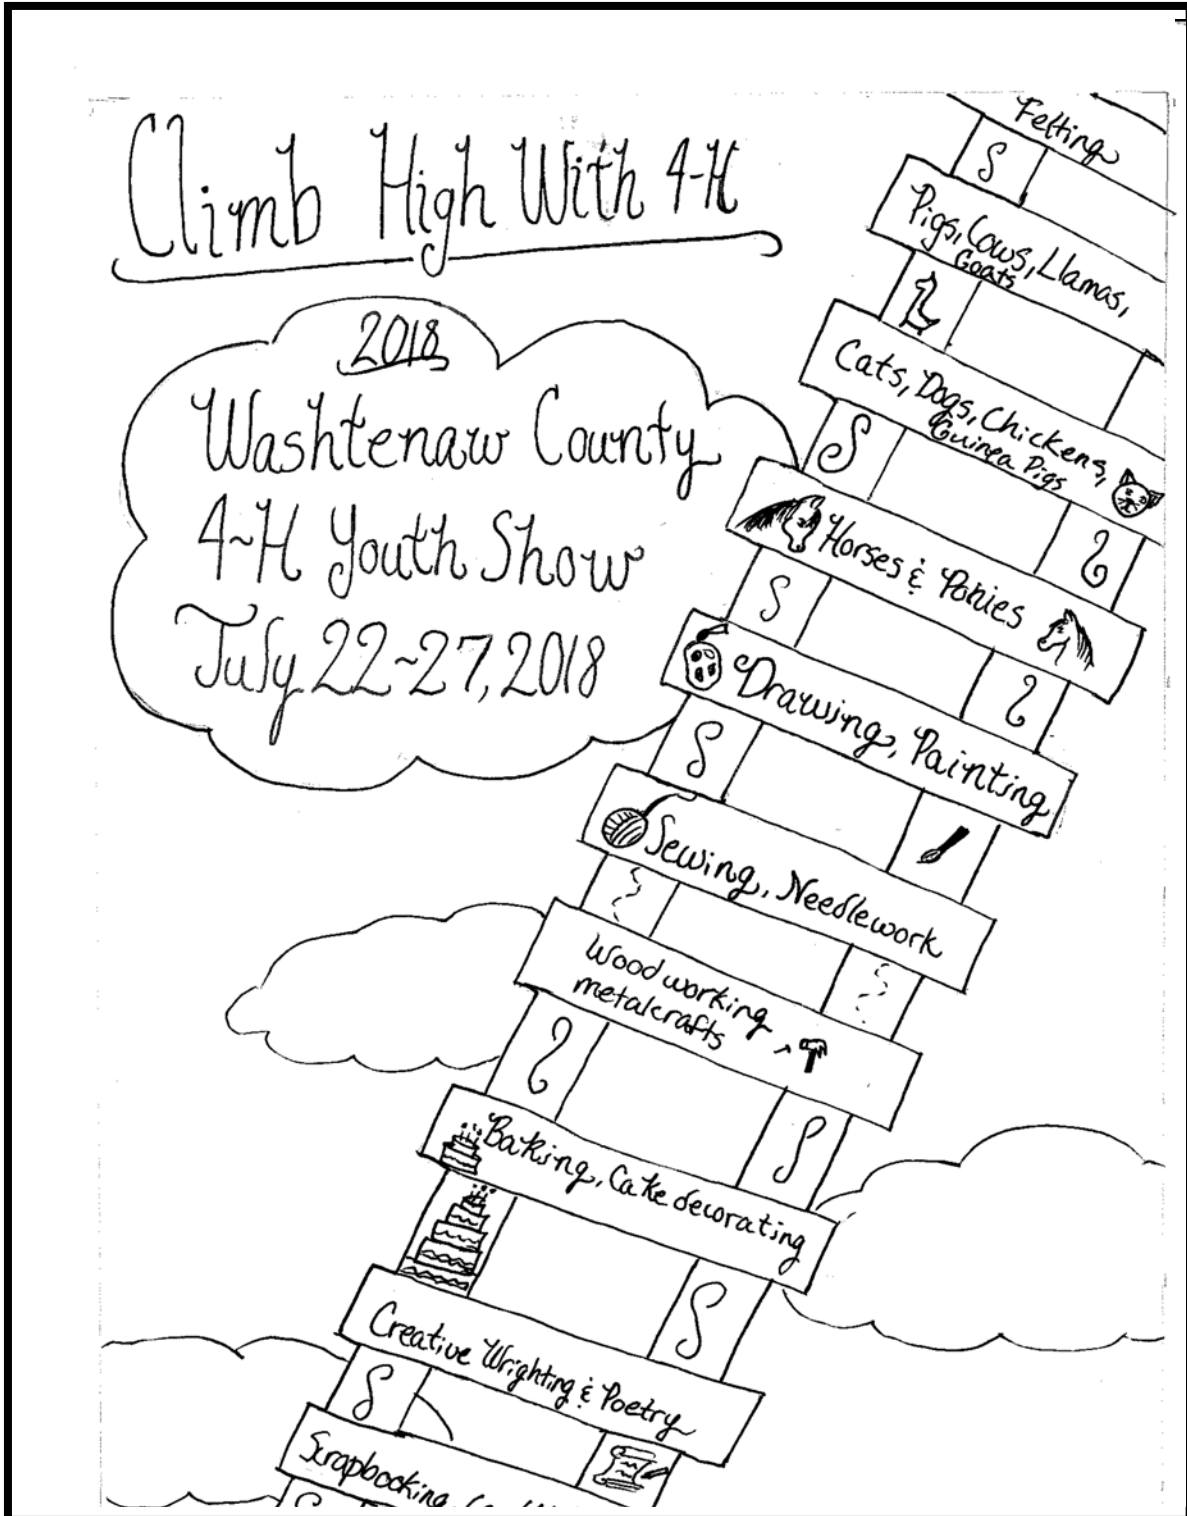 Climb High With 4-H
2018
Washtenaw County
4-H Youth Show
July 22-27, 2018
Felting
Pigs, Cows, Llamas,
Goats
Cats, Dogs, Chickens,
Guinea Pigs
Horses & Ponies
Drawing, Painting
Sewing, Needlework
Woodworking
metalcrafts
Baking, Cake decorating
Creative Wrighting & Poetry
Scrapbooking,